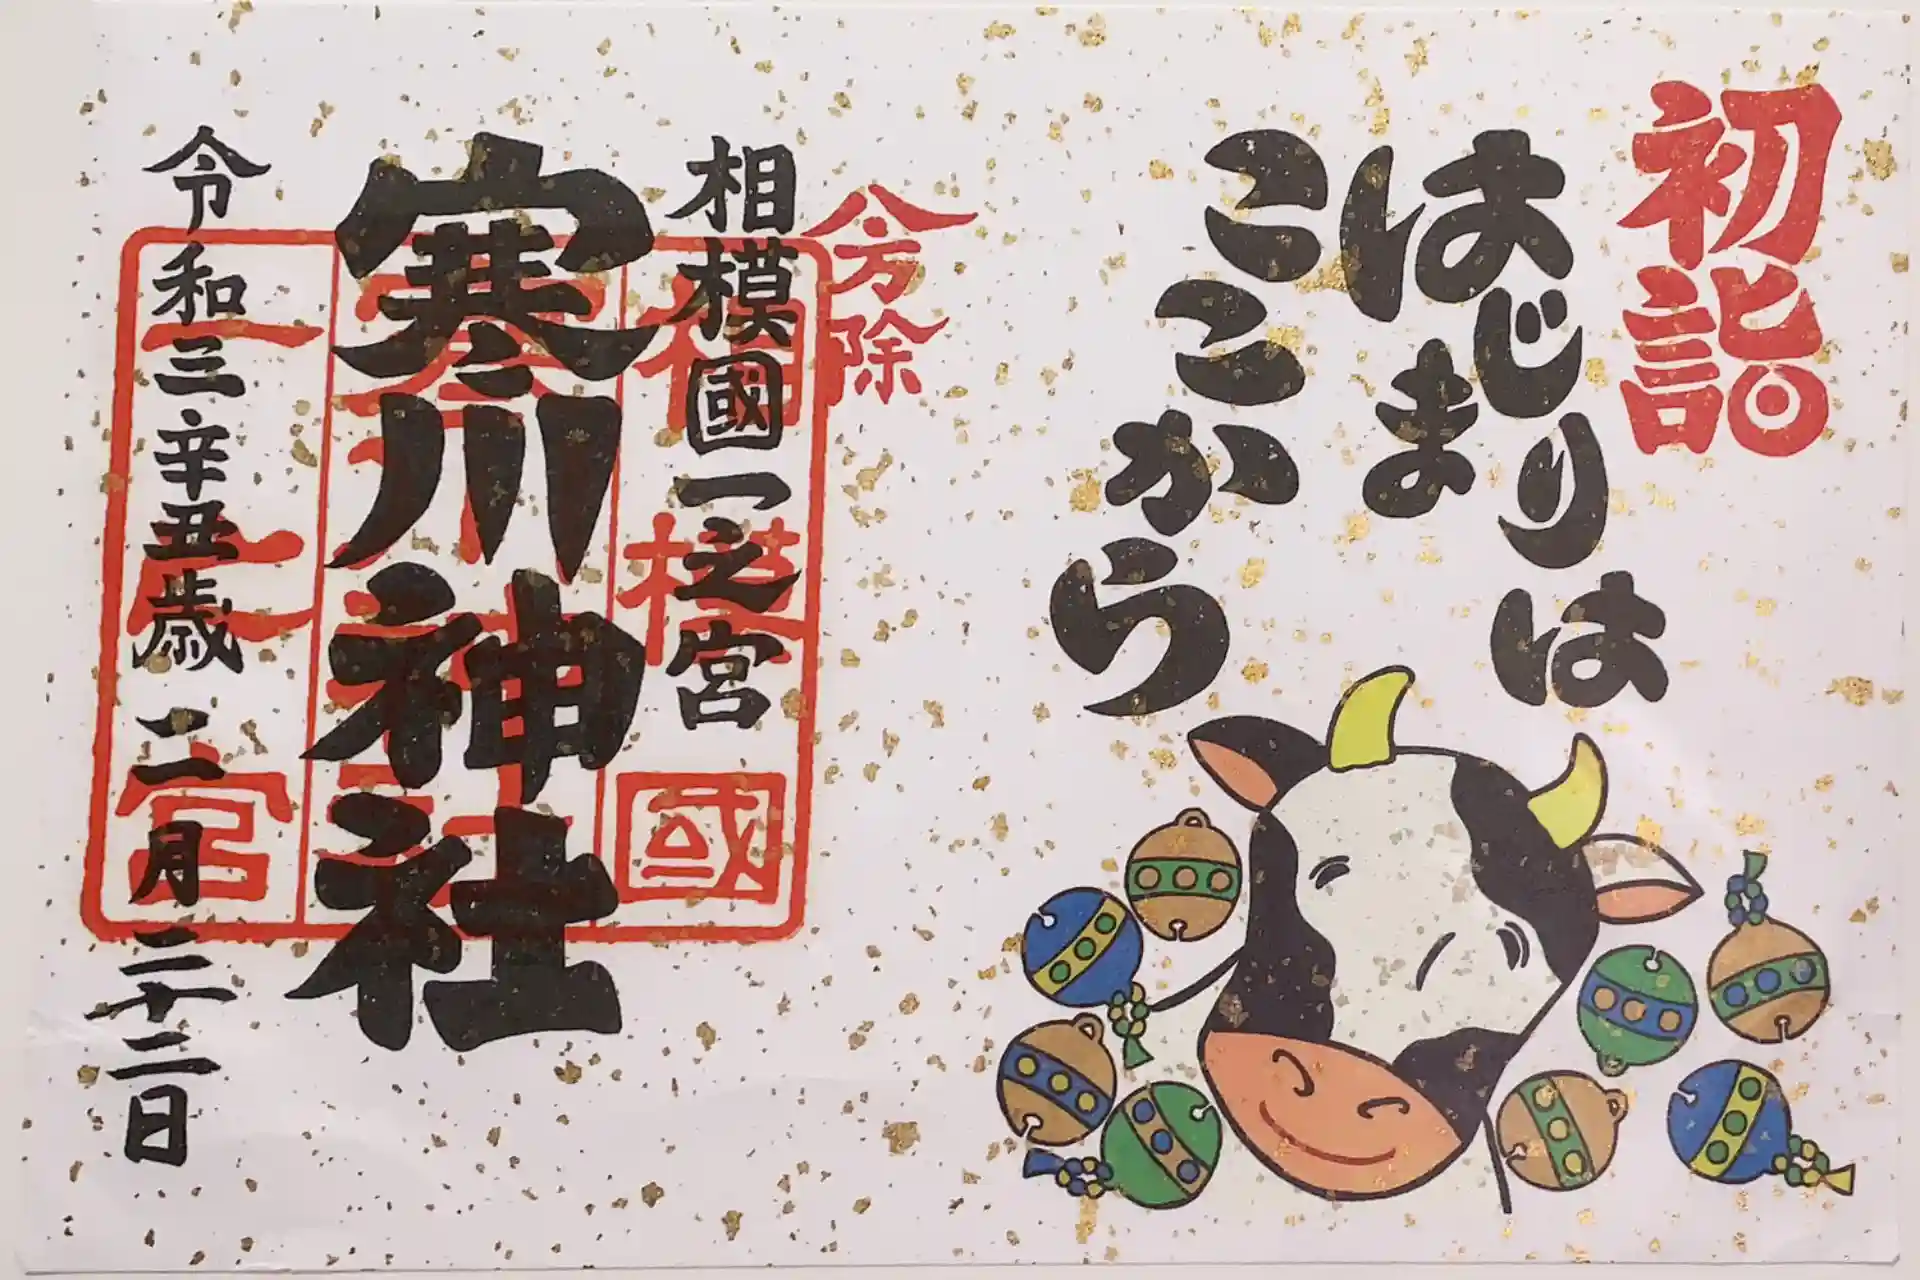 初詣
はじまりは
ここから
八方除
相模國一之宮
寒川神社
令和三辛丑歳 二月二十二日
相模國
寒川神社
一之宮